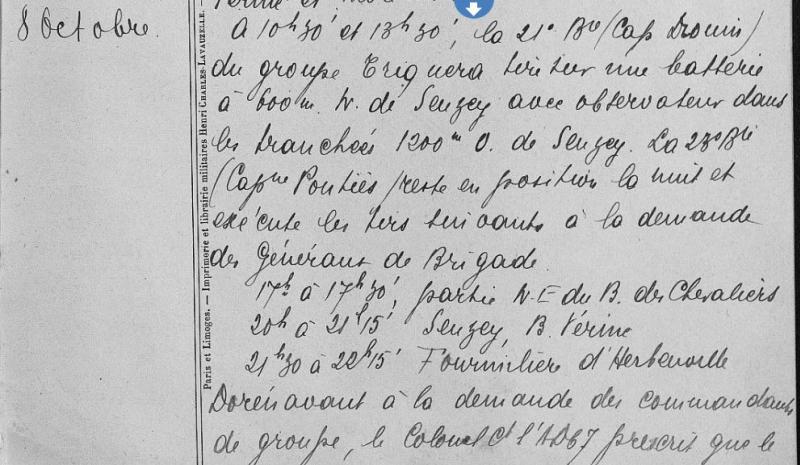 8 Octobre.
Vérine et
A 10h30' et 13h30', la 21e Bie (Cap Drouin)
du groupe Triguera tire sur une batterie
à 600m. N. de Senzey avec observateur dans
les tranchées 1200m O. de Senzey. La 23e Bie
(Capne Pontiès) reste en position la nuit et
exécute les tirs suivants à la demande
des Généraux de Brigade.
17h à 17h30', partie N-E du B. des Chevaliers
20h à 21h15' Senzey, B. Vérine
21h30 à 22h15' Fourmilière d'Herbeuville
Dorénavant à la demande des commandants
de groupe, le Colonel Ct l'AD67 prescrit que le
Paris et Limoges. — Imprimerie et librairie militaires Henri CHARLES-LAVAUZELLE.